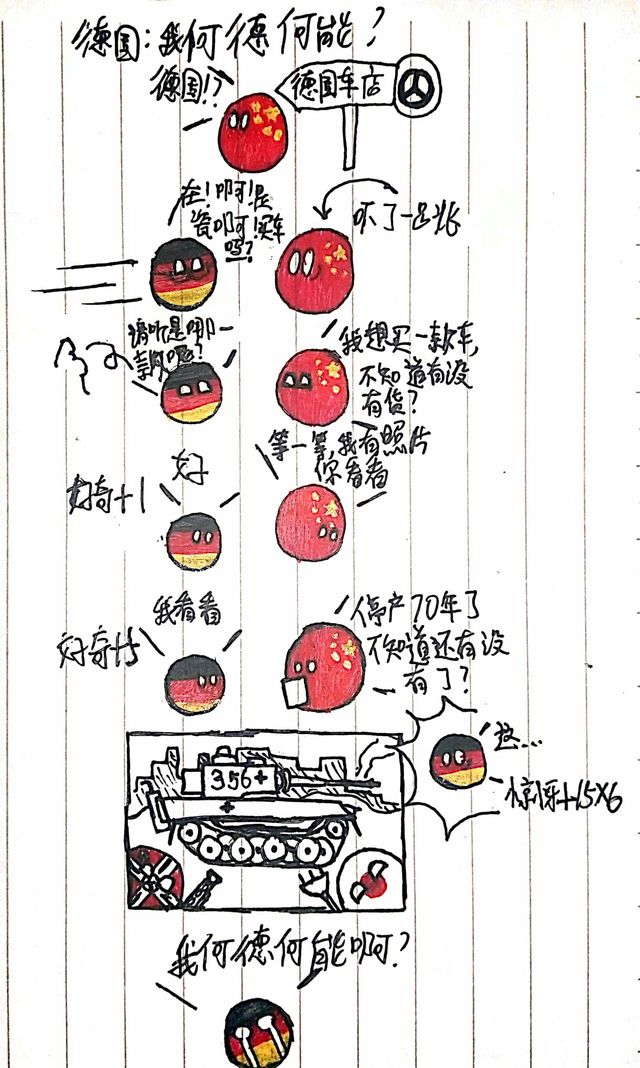 德国：我何德何能？
德国！？
德国车店
在！啊！是
资啊！买车
吗？
吓了一跳
请听是哪一
款呢？
我想买一款车，
不知道有没
有货？
等一等，我有照片
你看看
好
好奇+1
我看看
好奇+5
停产70年了
不知道还有没
有了？
356+
这...
惊讶+15×6
我何德何能啊？